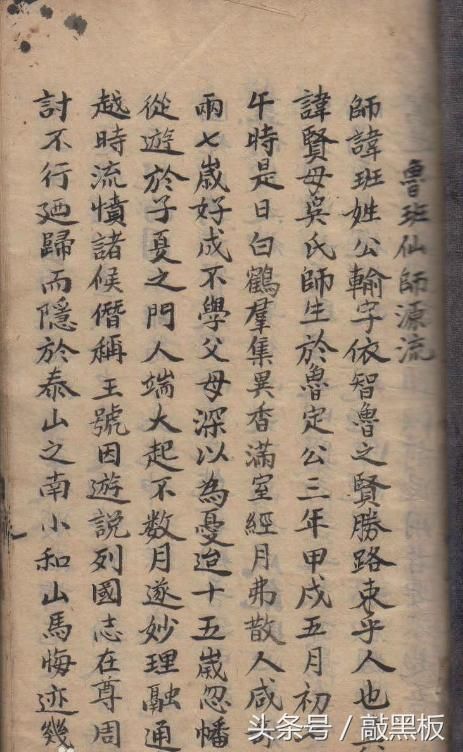 魯班仙師源流
師諱班姓公輸字依智魯之賢勝路東乎人也
諱賢母吳氏師生於魯定公三年甲戌五月初
午時是日白鶴羣集異香滿室經月弗散人咸
兩七歲好成不學父母深以為憂迨十五歲忽幡
從遊於子夏之門人端大起不数月遂妙理融通
越時流憤諸候僭稱王號因遊說列國志在尊周
討不行廼歸而隱於泰山之南小和山馬悔迹幾
头条号／敲黑板